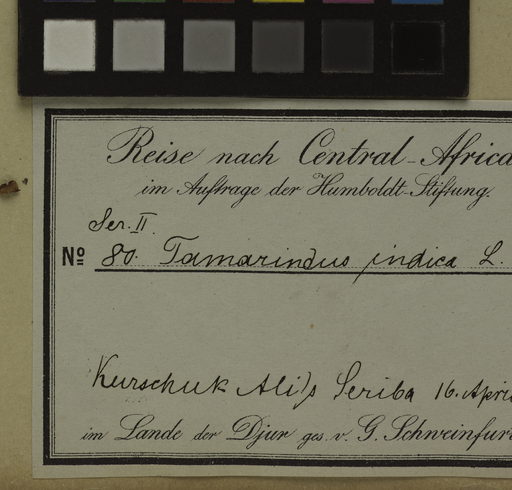 Reise nach Central-Africa
im Auftrage der Humboldt-Stiftung.
Ser. II.
No 80. Tamarindus indica L.
Kurschuk Ali's Seriba 16. Apri
im Lande der Djur ges. v. G. Schweinfur